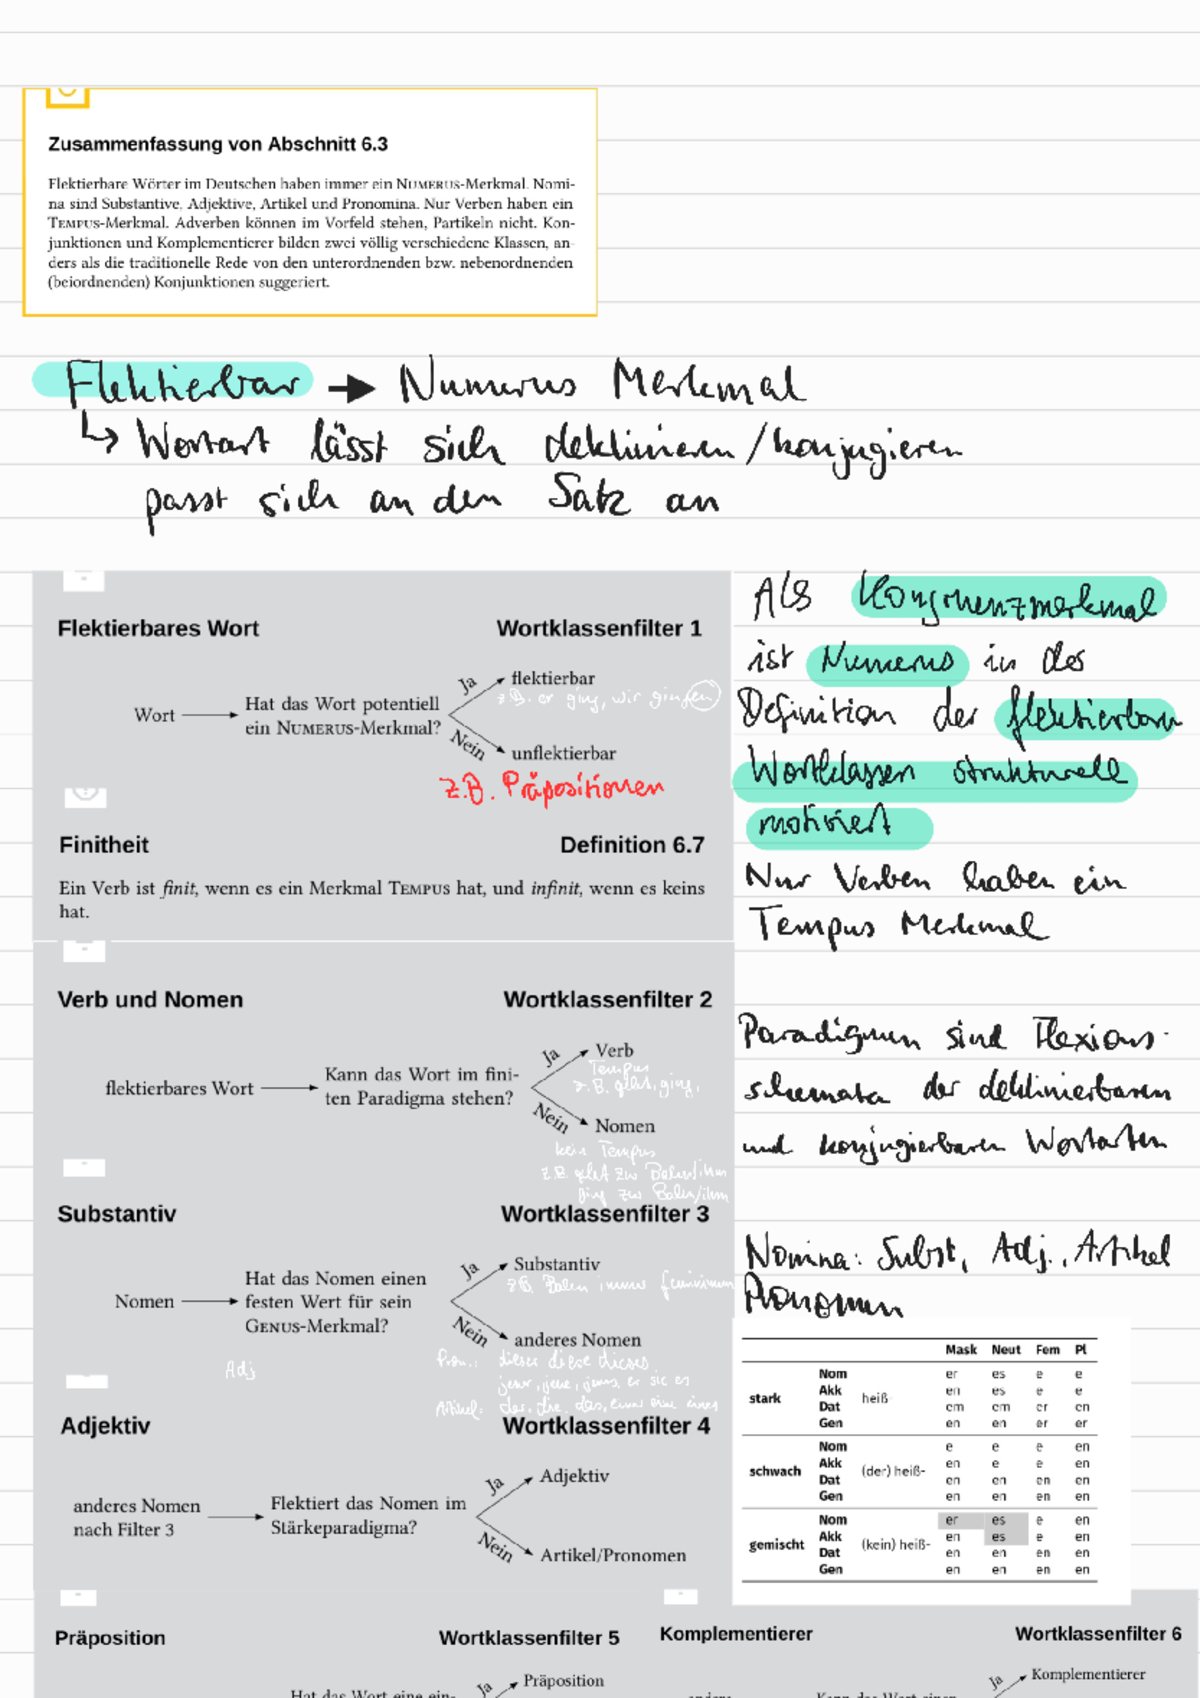 Zusammenfassung von Abschnitt 6.3
Flektierbare Wörter im Deutschen haben immer ein NUMERUS-Merkmal. Nomi-
na sind Substantive, Adjektive, Artikel und Pronomina. Nur Verben haben ein
TEMPUS-Merkmal. Adverben können im Vorfeld stehen, Partikeln nicht. Kon-
junktionen und Komplementierer bilden zwei völlig verschiedene Klassen, an-
ders als die traditionelle Rede von den unterordnenden bzw. nebenordnenden
(beiordnenden) Konjunktionen suggeriert.
Flektierbar → Numerus Merkmal
↳ Wortart lässt sich deklinieren/konjugieren
passt sich an den Satz an
Flektierbares Wort Wortklassenfilter 1
Wort
Hat das Wort potentiell
ein NUMERUS-Merkmal?
Ja
flektierbar
z.B. er ging, wir gingen
Nein
unflektierbar
z.B. Präpositionen
Finitheit Definition 6.7
Ein Verb ist finit, wenn es ein Merkmal TEMPUS hat, und infinit, wenn es keins
hat.
Als Kongruenzmerkmal
ist Numerus in der
Definition der flektierbaren
Wortklassen strukturell
motiviert
Nur Verben haben ein
Tempus Merkmal
Verb und Nomen Wortklassenfilter 2
flektierbares Wort
Kann das Wort im fini-
ten Paradigma stehen?
Ja
Verb
Tempus
z.B. geht, ging,
Nein
Nomen
kein Tempus
z.B. geht zur
ging zur
Paradigmen sind Flexions-
schemata der deklinierbaren
und konjugierbaren Wortarten
Substantiv Wortklassenfilter 3
Nomen
Hat das Nomen einen
festen Wert für sein
GENUS-Merkmal?
Ja
Substantiv
z.B. immer femininum
Nein
anderes Nomen
Adj
Pron.: dieser diese dieses
jener, jene, jenes, er sie es
Artikel: der, die, das, einer eine eines
Nomina: Subst, Adj., Artikel
Pronomen
Adjektiv Wortklassenfilter 4
anderes Nomen
nach Filter 3
Flektiert das Nomen im
Stärkeparadigma?
Ja
Adjektiv
Nein
Artikel/Pronomen
Mask Neut Fem Pl
stark heiß-
Nom er es e e
Akk en es e e
Dat em em er en
Gen en en er er
schwach (der) heiß-
Nom e e e en
Akk en e e en
Dat en en en en
Gen en en en en
gemischt (kein) heiß-
Nom er es e en
Akk en es e en
Dat en en en en
Gen en en en en
Präposition Wortklassenfilter 5
Ja
Präposition
Hat das Wort eine ein-
Komplementierer Wortklassenfilter 6
Ja
Komplementierer